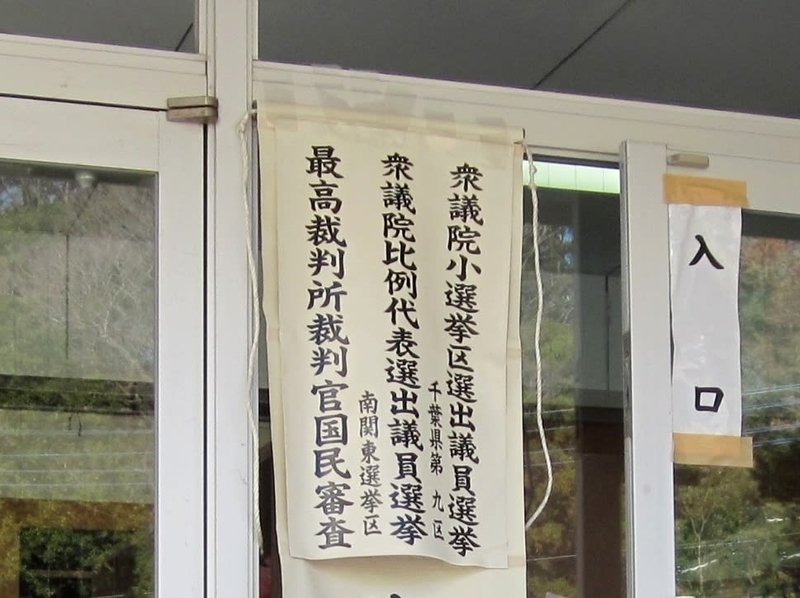 衆議院小選挙区選出議員選挙
千葉県第九区
衆議院比例代表選出議員選挙
南関東選挙区
最高裁判所裁判官国民審査
入口